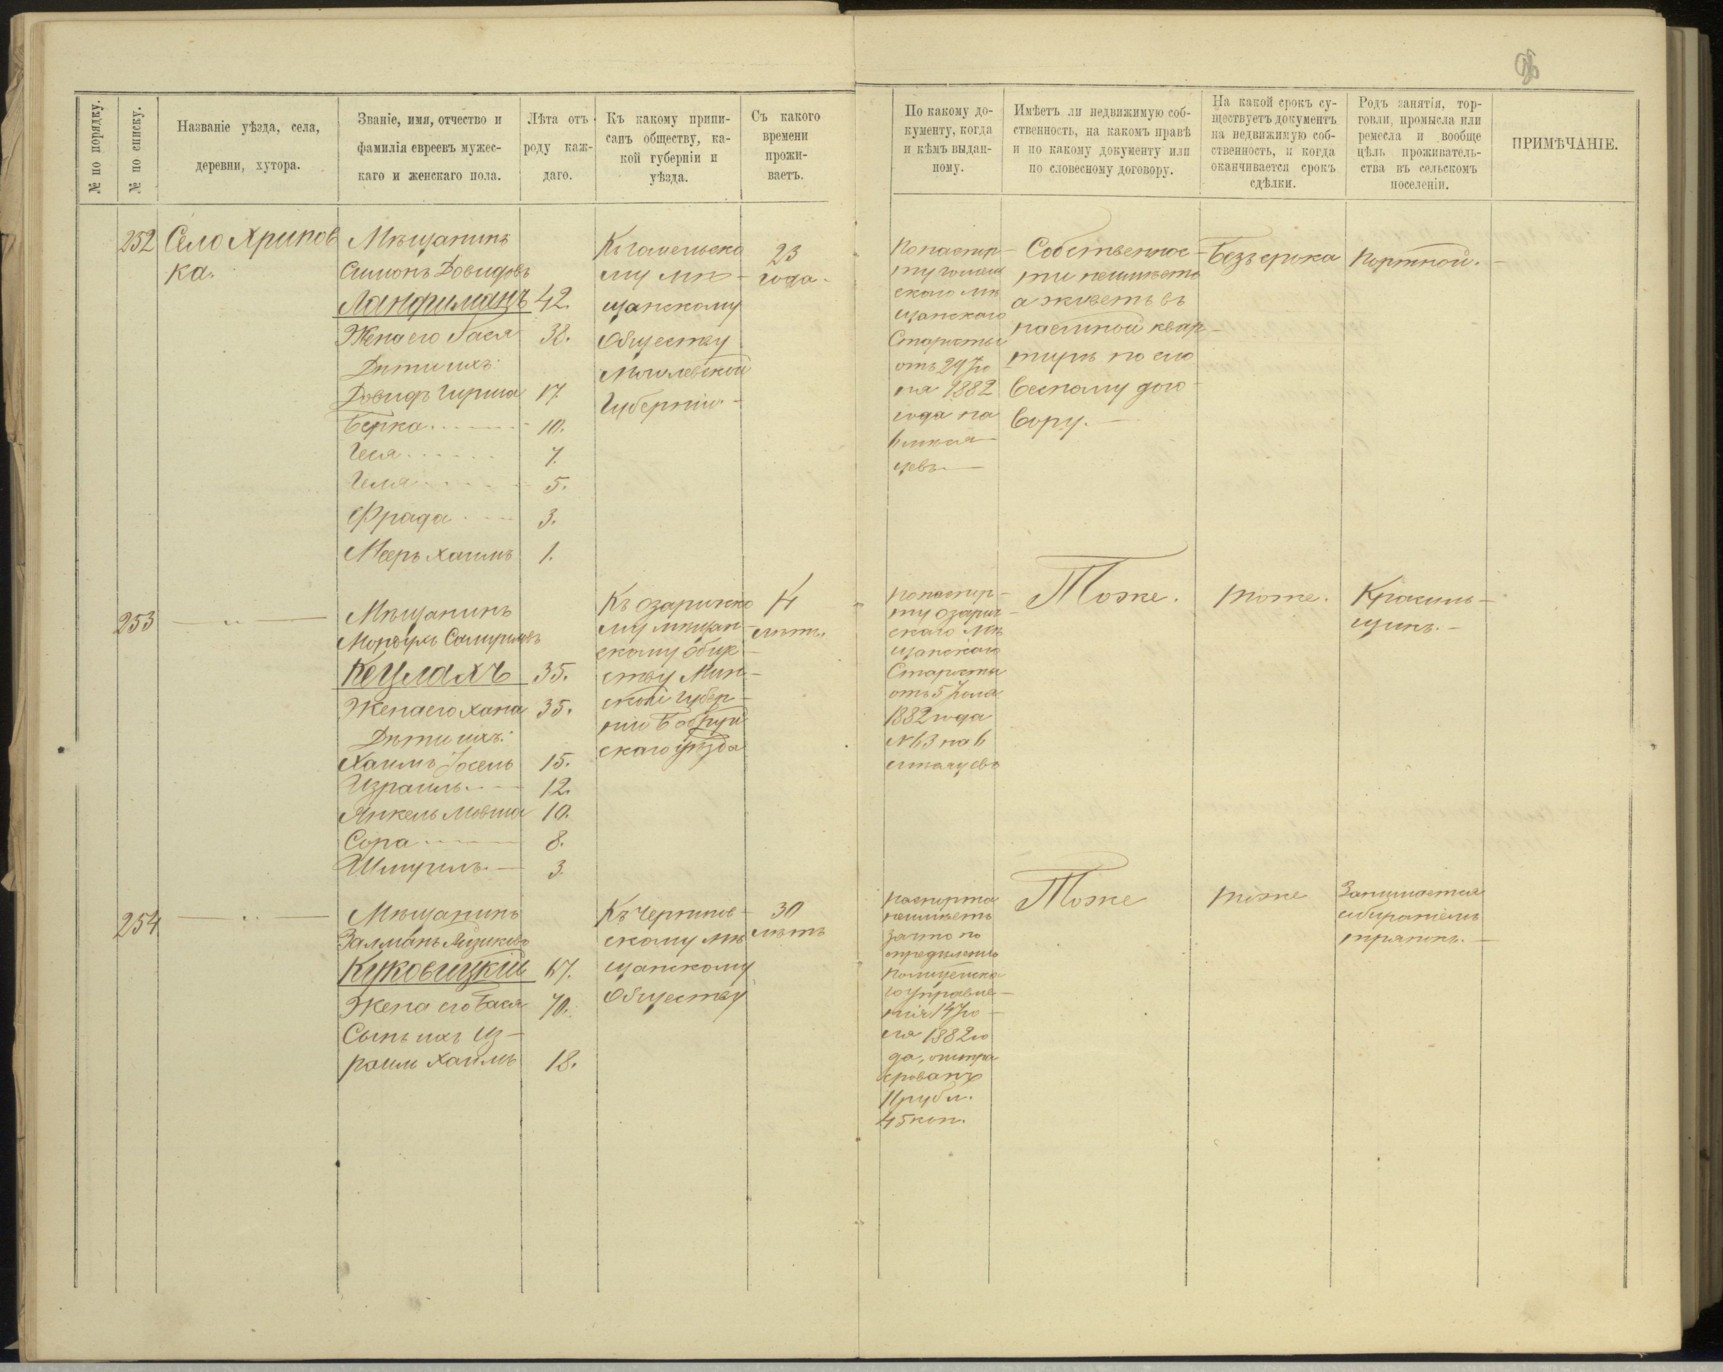 № по порядку.
№ по списку.
Названіе уѣзда, села,
деревни, хутора.
Званіе, имя, отчество и
фамилія евреевъ мужес-
каго и женскаго пола.
Лѣта отъ
роду каж-
даго.
Къ какому припи-
санъ обществу, ка-
кой губерніи и
уѣзда.
Съ какого
времени
прожи-
ваетъ.
По какому до-
кументу, когда
и кѣмъ выдан-
ному.
Имѣетъ ли недвижимую соб-
ственность, на какомъ правѣ
и по какому документу или
по словесному договору.
На какой срокъ су-
ществуетъ документъ
на недвижимую соб-
ственность, и когда
оканчивается срокъ
сдѣлки.
Родъ занятія, тор-
говли, промысла или
ремесла и вообще
цѣль проживатель-
ства въ сельскомъ
поселеніи.
ПРИМѢЧАНІЕ.
252
Село Хрипов
ка.
Мѣщанинъ
Симонъ Довидовъ
Ланфиминъ 42.
Жена его Бася 38.
Дѣти ихъ:
Довидъ Гирша 17
Берка 10.
Геся 7.
Геля 5.
Фрада 3.
Мееръ Хаимъ 1.
Къ гомельско
му мѣ-
щанскому
Обществу
Могилевской
Губерніи
23
года.
По паспор-
ту гомель
скаго мѣ
щанскаго
Старосты
отъ 29 Ію
ля 1882
года на
6 мѣся
цевъ
Собственнос-
ти неимѣетъ
а живетъ въ
наемной квар-
тирѣ по сло
весному дого-
вору.
Безъ срока
Портной.
253
Мѣщанинъ
Мовгумъ Самуиловъ
Кецлахъ 35.
Жена его Хана 35.
Дѣти ихъ:
Хаимъ Іосель 15.
Израиль 12.
Янкель Мовша 10.
Сора 8.
Шмуилъ 3.
Къ озаричско
му мѣщан-
скому обще-
ству Мин-
ской губер-
ніи Бобруй
скаго уѣзда
14
лѣтъ.
По паспор-
ту озарич-
скаго мѣ
щанскаго
Старосты
отъ 5 Іюля
1882 года
№ 63 на 6
мѣсяцевъ
Тоже.
тоже.
Красиль-
щикъ.
254
Мѣщанинъ
Залманъ Айзиковъ
Куковицкій 67.
Жена его Бася 70.
Сынъ ихъ Из-
раиль Хаимъ 18.
Къ Чернигов-
скому мѣ
щанскому
Обществу
30
лѣтъ
Паспорта
неимѣетъ
за что по
опредѣленію
Полицейска
го Управле-
нія 14 Ію
ля 1882 го
да, оштра
фованъ
11 рубл.
45 коп.
Тоже
тоже
Занимается
собираніемъ
тряпокъ.